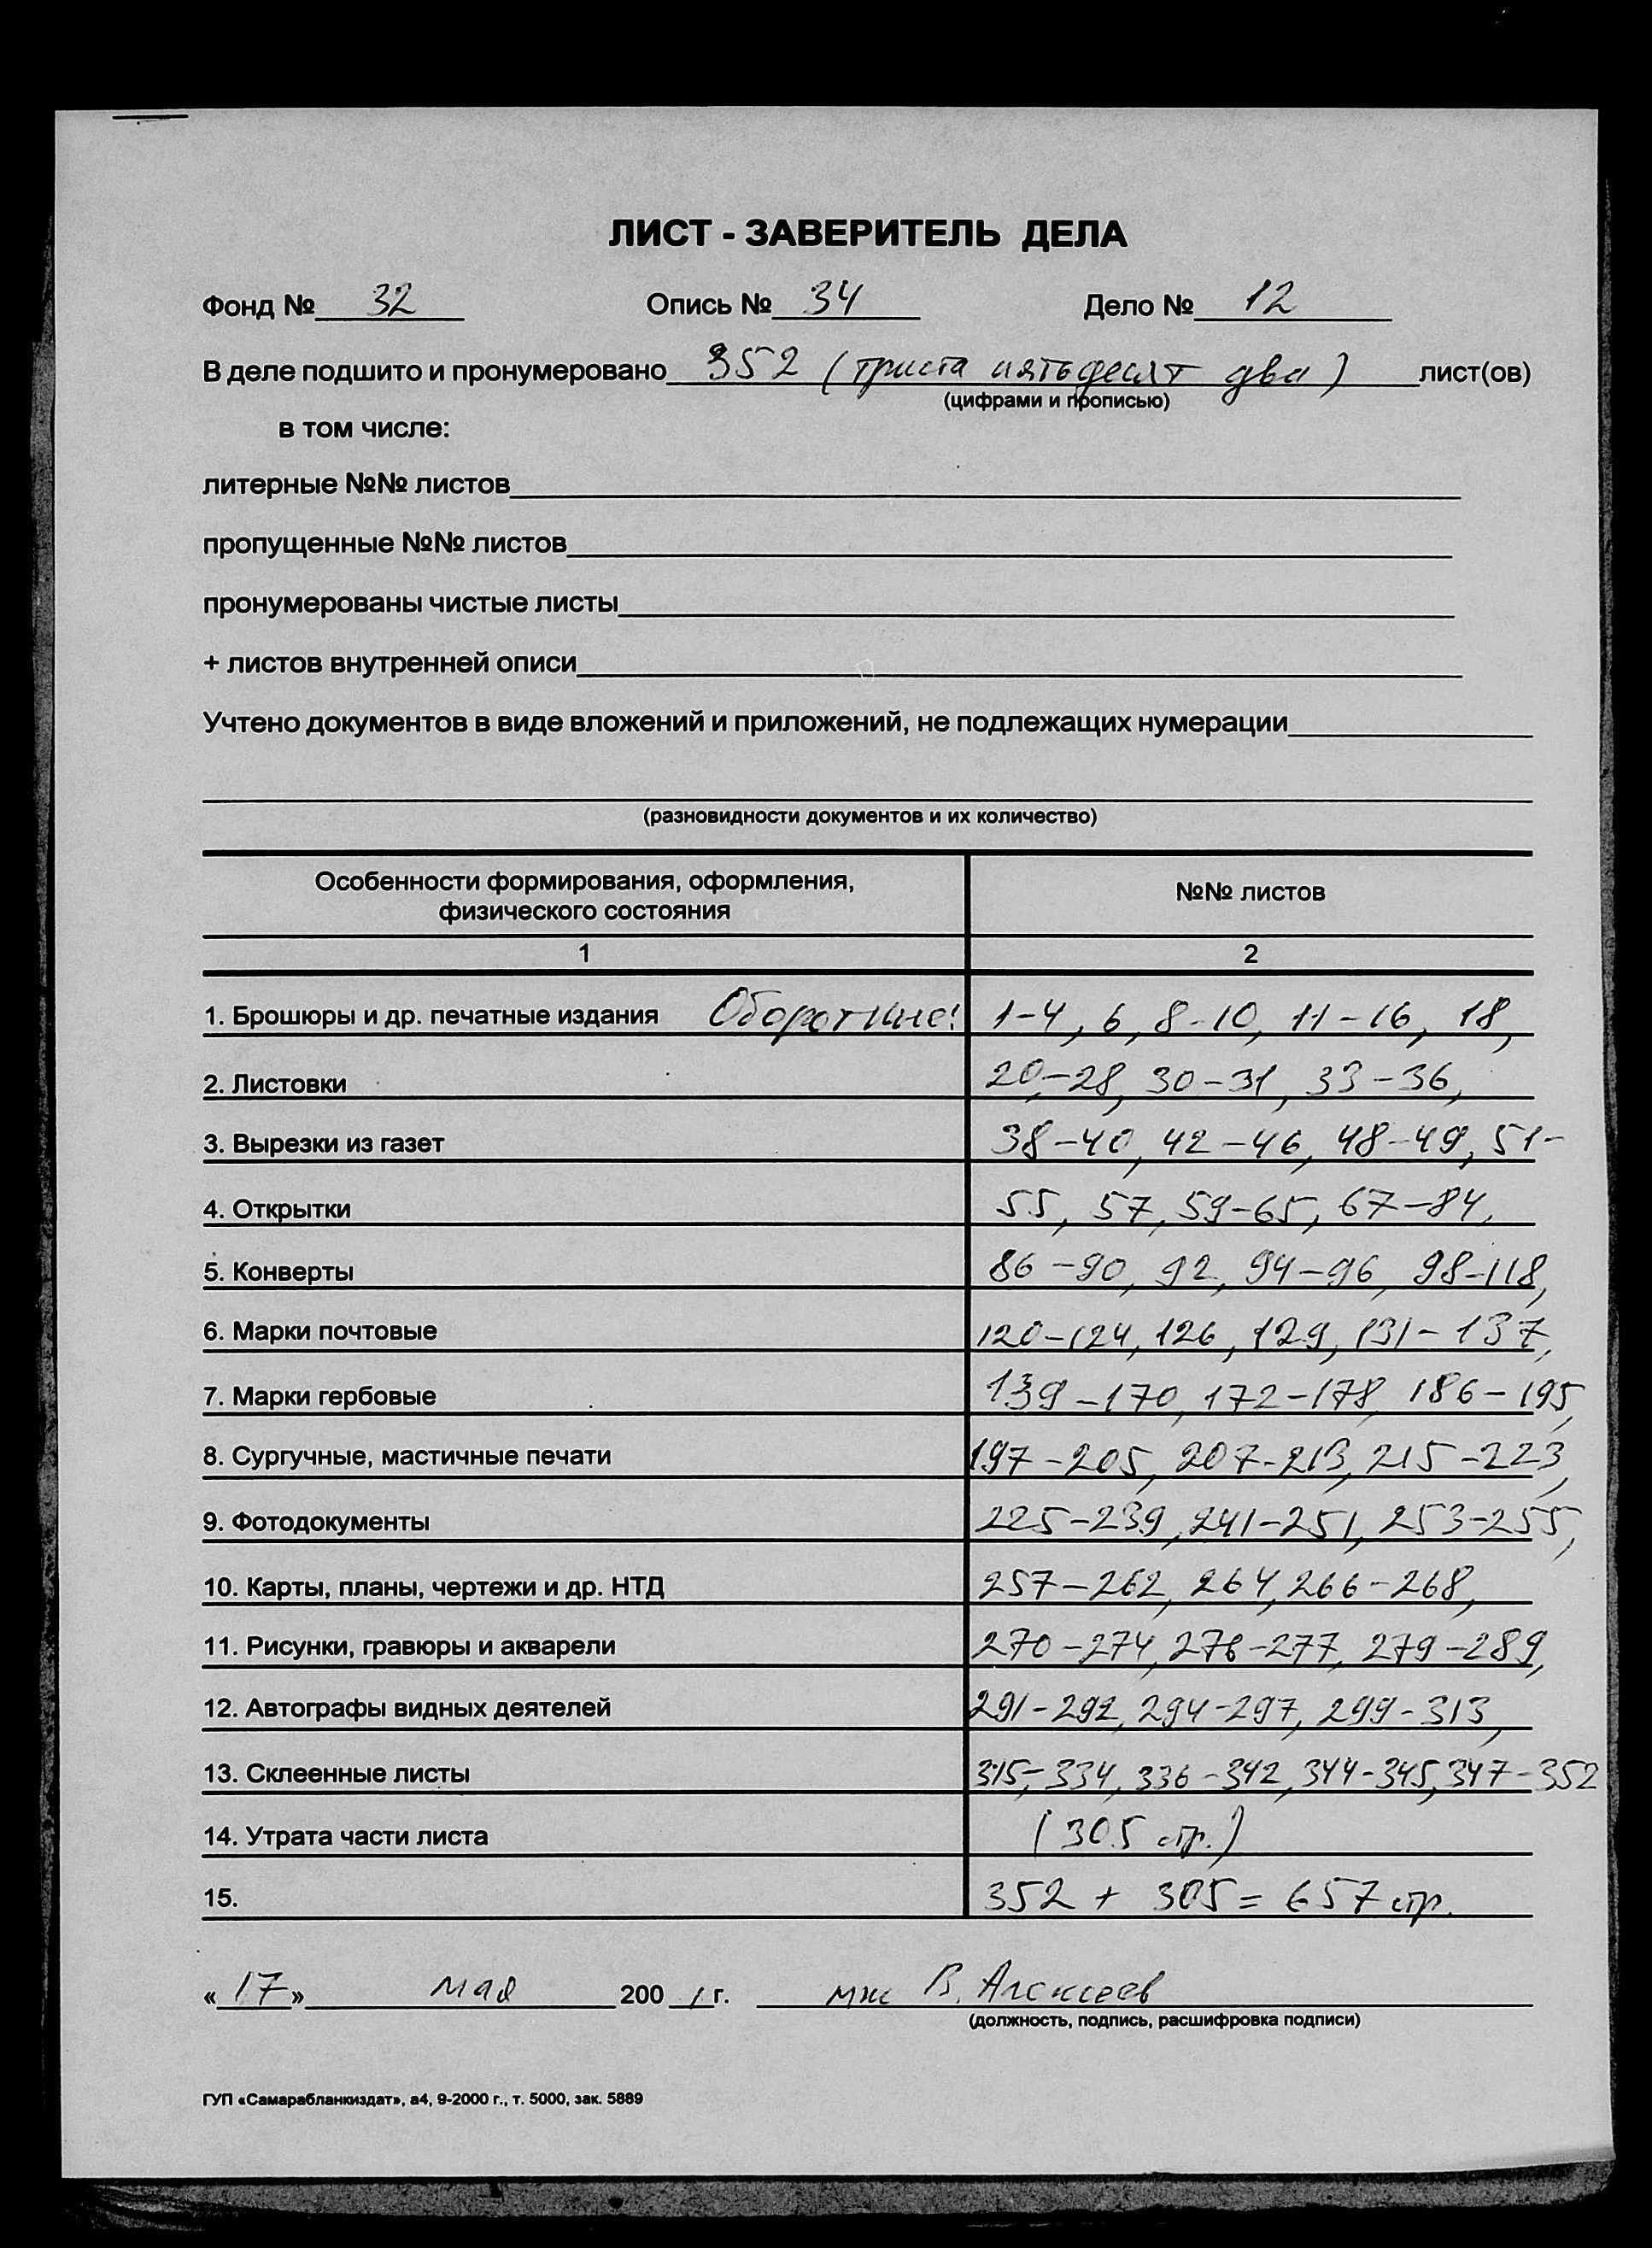 ЛИСТ - ЗАВЕРИТЕЛЬ ДЕЛА
Фонд № 32 Опись № 34 Дело № 12
В деле подшито и пронумеровано 352 (триста пятьдесят два) лист(ов)
(цифрами и прописью)
в том числе:
литерные №№ листов
пропущенные №№ листов
пронумерованы чистые листы
+ листов внутренней описи
Учтено документов в виде вложений и приложений, не подлежащих нумерации
(разновидности документов и их количество)
Особенности формирования, оформления,
физического состояния
№№ листов
1 2
1. Брошюры и др. печатные издания Оборотные! 1-4, 6, 8-10, 11-16, 18,
2. Листовки 20-28, 30-31, 33-36,
3. Вырезки из газет 38-40, 42-46, 48-49, 51-
4. Открытки 55, 57, 59-65, 67-84,
5. Конверты 86-90, 92, 94-96, 98-118,
6. Марки почтовые 120-124, 126, 129, 131-137,
7. Марки гербовые 139-170, 172-178, 186-195,
8. Сургучные, мастичные печати 197-205, 207-213, 215-223,
9. Фотодокументы 225-239, 241-251, 253-255,
10. Карты, планы, чертежи и др. НТД 257-262, 264, 266-268,
11. Рисунки, гравюры и акварели 270-274, 276-277, 279-289,
12. Автографы видных деятелей 291-292, 294-297, 299-313,
13. Склеенные листы 315-334, 336-342, 344-345, 347-352
14. Утрата части листа (305 стр.)
15. 352 + 305 = 657 стр.
«17» мая 2001 г. В. Алексеев
(должность, подпись, расшифровка подписи)
ГУП «Самарабланкиздат», а4, 9-2000 г., т. 5000, зак. 5889